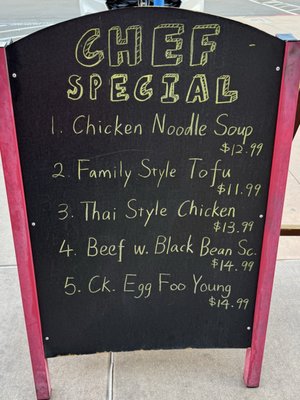 CHEF
SPECIAL
1. Chicken Noodle Soup
$12.99
2. Family Style Tofu
$11.99
3. Thai Style Chicken
$13.99
4. Beef w. Black Bean Sc.
$14.99
5. Ck. Egg Foo Young
$14.99